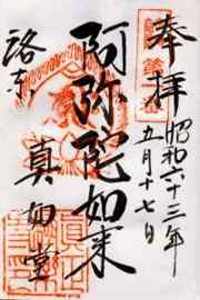 奉拝
昭和六十三年
五月十七日
阿弥陀如来
洛東
真如堂